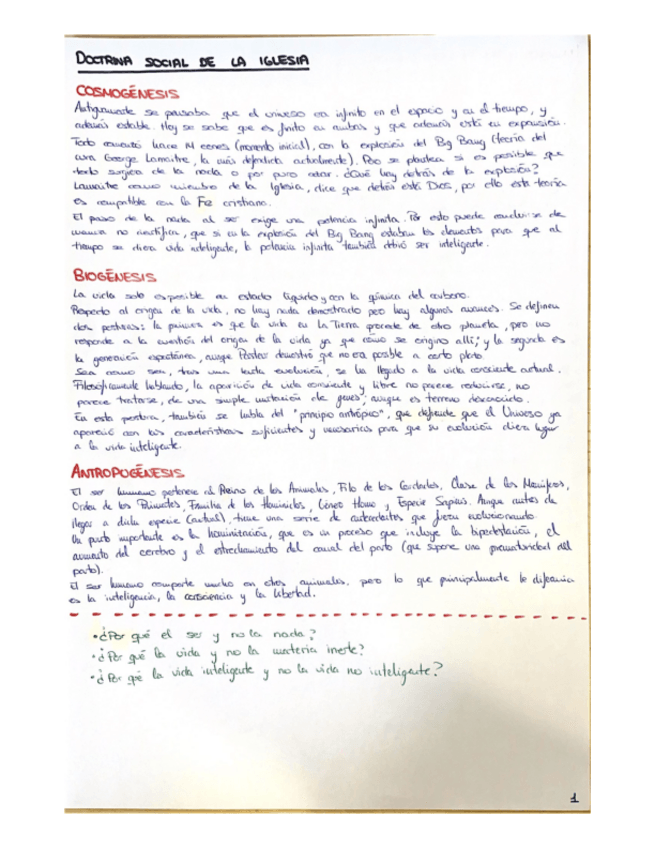 DOCTRINA SOCIAL DE LA IGLESIA
COSMOGÉNESIS
Antiguamente se pensaba que el universo era infinito en el espacio y en el tiempo, y
además estable. Hoy se sabe que es finito en ambos y que además está en expansión.
Todo comenzó hace 14 eones (momento inicial), con la explosión del Big Bang (teoría del
cura George Lamaitre, la más defendida actualmente). Pero se plantea si es posible que
todo surgiera de la nada o por puro azar. ¿Qué hay detrás de la explosión?
Lamaitre como miembro de la Iglesia, dice que detrás está Dios, por ello esta teoría
es compatible con la Fe cristiana.
El paso de la nada al ser exige una potencia infinita. Por esto puede concluirse de
manera no científica, que si en la explosión del Big Bang estaban los elementos para que al
tiempo se diera vida inteligente, la potencia infinita también debió ser inteligente.
BIOGÉNESIS
La vida solo es posible en estado líquido y con la química del carbono.
Respecto al origen de la vida, no hay nada demostrado pero hay algunos avances. Se definen
dos posturas: la primera es que la vida en La Tierra procede de otro planeta, pero no
responde a la cuestión del origen de la vida ya que cómo se originó allí; y la segunda es
la generación espontánea, aunque Pasteur demostró que no era posible a corto plazo.
Sea como sea, tras una lenta evolución, se ha llegado a la vida consciente actual.
Filosóficamente hablando, la aparición de vida consciente y libre no parece reducirse, no
parece tratarse, de una simple mutación de genes, aunque es terreno desconocido.
En esta postura, también se habla del "principio antrópico", que defiende que el Universo ya
apareció con las características suficientes y necesarias para que su evolución diera lugar
a la vida inteligente.
ANTROPOGÉNESIS
El ser humano pertenece al Reino de los Animales, Filo de los Cordados, Clase de los Mamíferos,
Orden de los Primates, Familia de los Homínidos, Género Homo y Especie Sapiens. Aunque antes de
llegar a dicha especie (actual), tiene una serie de antecedentes que fueron evolucionando.
Un punto importante es la hominización, que es un proceso que incluye la bipedestación, el
aumento del cerebro y el estrechamiento del canal del parto (que supone una prematuridad del
parto).
El ser humano comparte mucho con otros animales, pero lo que principalmente le diferencia
es la inteligencia, la consciencia y la libertad.
• ¿Por qué el ser y no la nada?
• ¿Por qué la vida y no la materia inerte?
• ¿Por qué la vida inteligente y no la vida no inteligente?
1